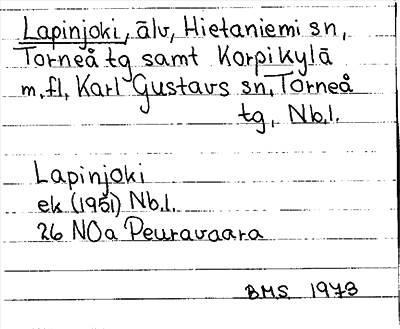 Lapinjoki, älv, Hietaniemi sn,
Torneå tg samt Korpikylä
m.fl, Karl Gustavs sn, Torneå
tg, Nb.l.
Lapinjoki
ek (1951) Nb.l.
26 NOa Peuravaara
B.M.S. 1973